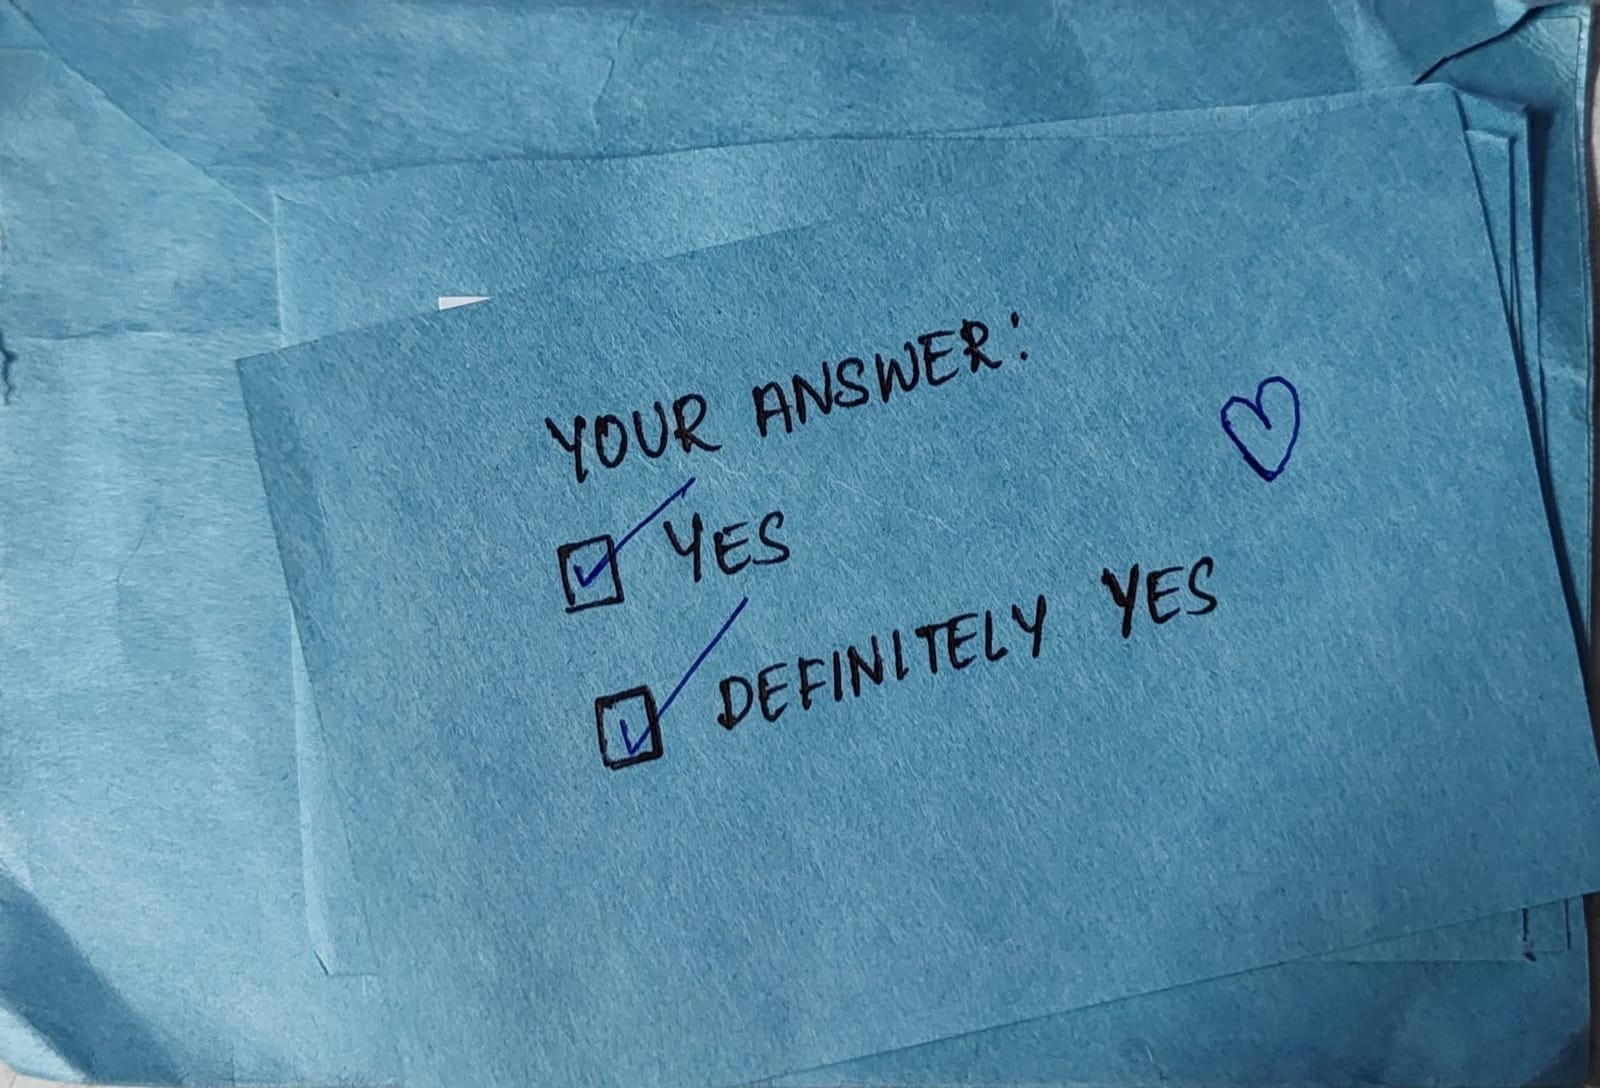 YOUR ANSWER:
☑ YES
☑ DEFINITELY YES